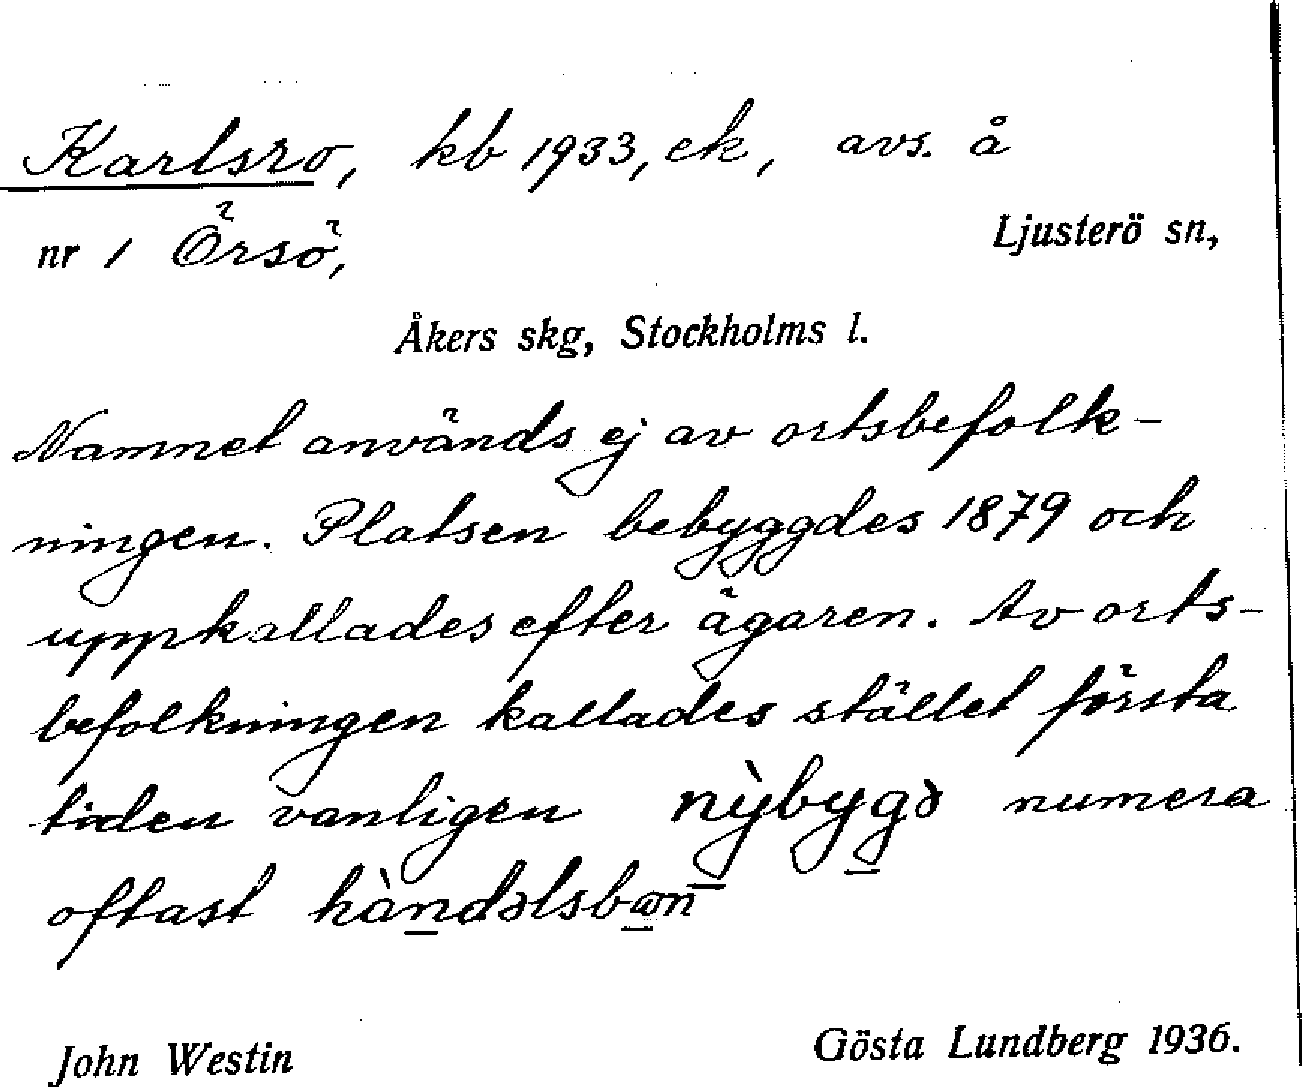 Karlsro, kb 1933, ek, avs. å
nr 1 Örsö, Ljusterö sn,
Åkers skg, Stockholms l.
Namnet används ej av ortsbefolk-
ningen. Platsen bebyggdes 1879 och
uppkallades efter ägaren. Av orts-
befolkningen kallades stället första
tiden vanligen nỳbygə numera
oftast hàndəlsbon
John Westin Gösta Lundberg 1936.